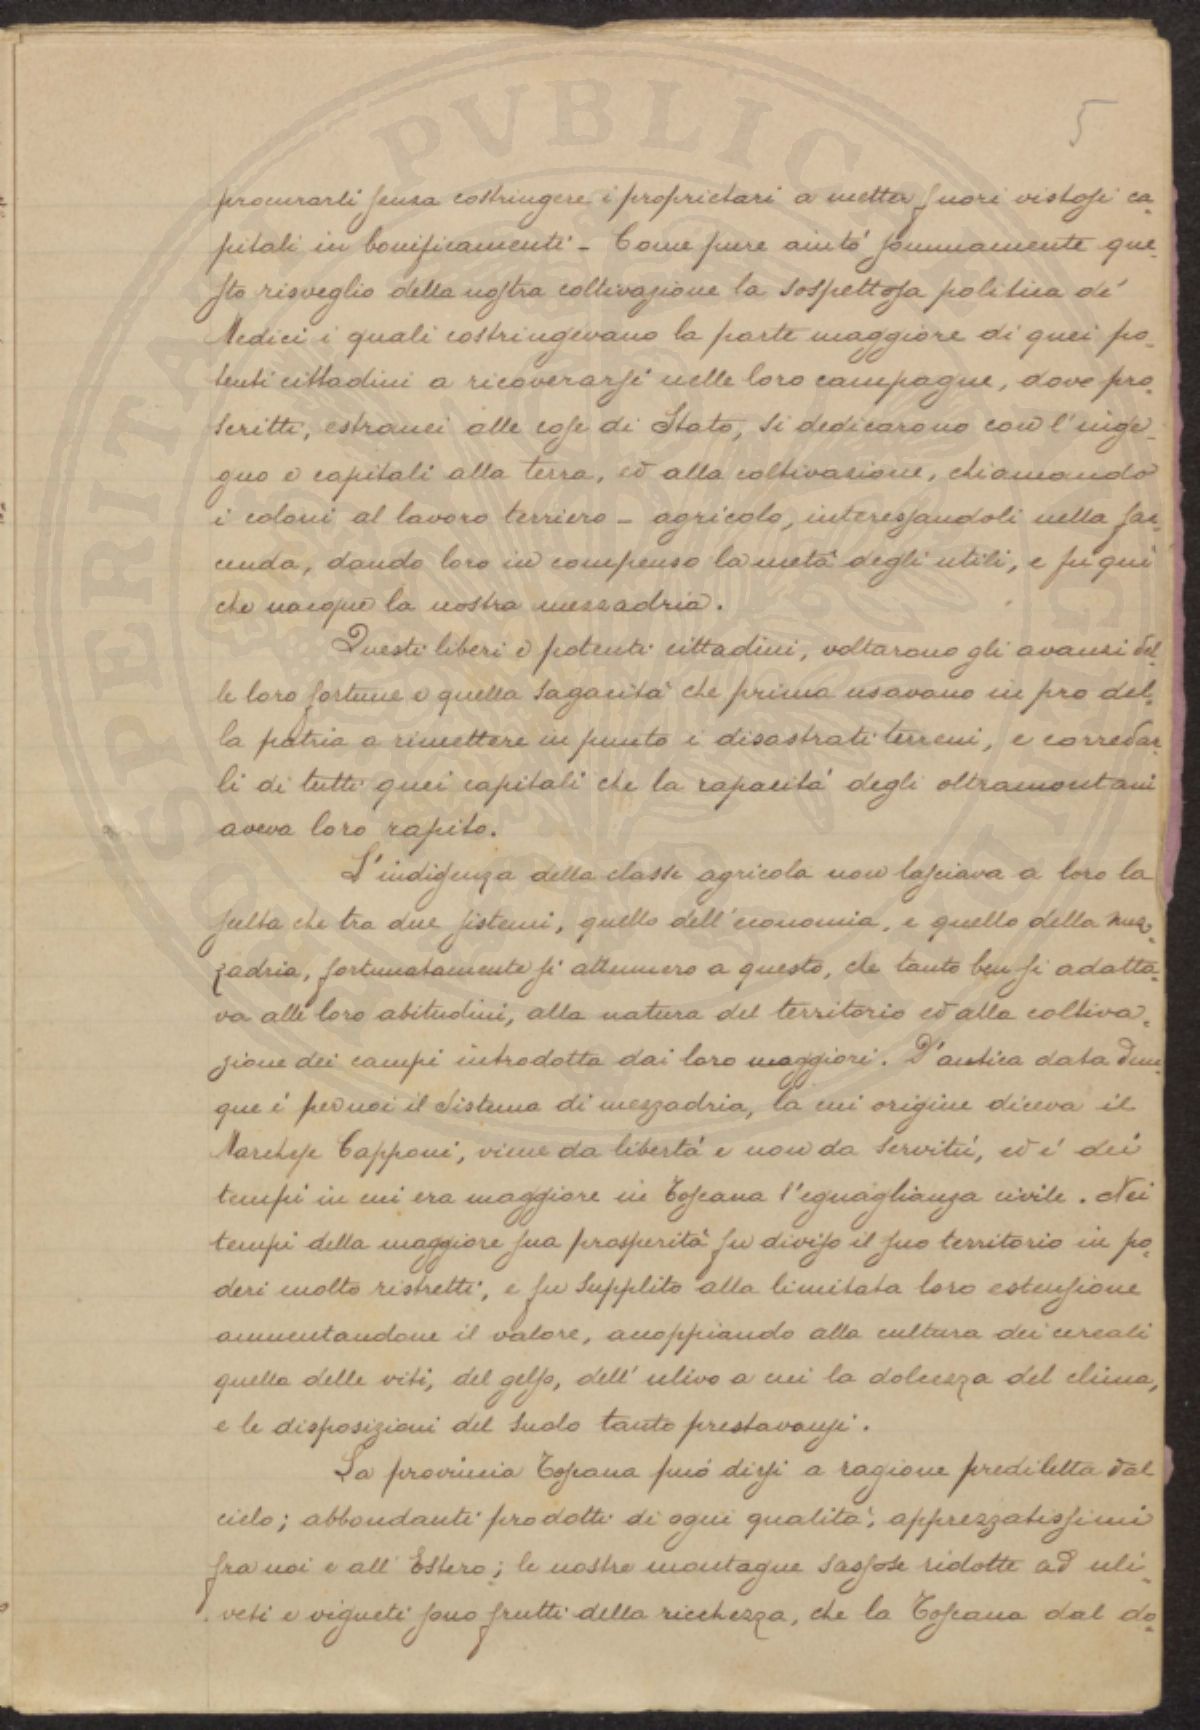 5
procurarli senza costringere i proprietari a metter fuori vistosi ca-
pitali in bonificamenti - Come pure aiutò sommamente que-
sto risveglio della nostra coltivazione la sospettosa politica de'
Medici i quali costringevano la parte maggiore di quei po-
tenti cittadini a ricoverarsi nelle loro campagne, dove pro-
scritti, estranei alle cose di Stato, si dedicarono con l'inge-
gno e capitali alla terra, ed alla coltivazione, chiamando
i coloni al lavoro terriero - agricolo, interessandoli nella fac-
cenda, dando loro in compenso la metà degli utili, e fu qui
che nacque la nostra mezzadria.
Questi liberi e potenti cittadini, voltarono gli avanzi del-
le loro fortune e quella sagacità che prima usavano in pro del-
la patria a rimettere in punto i disastrati terreni, e corredar-
li di tutti quei capitali che la rapacità degli oltramontani
aveva loro rapito.
L'indigenza della classe agricola non lasciava a loro la
scelta che tra due sistemi, quello dell'economia, e quello della mez-
zadria, fortunatamente si attennero a questo, che tanto ben si adatta-
va alle loro abitudini, alla natura del territorio ed alla coltiva-
zione dei campi introdotta dai loro maggiori. D'antica data dun-
que è per noi il sistema di mezzadria, la cui origine diceva il
Marchese Capponi, viene da libertà e non da servitù, ed è dei
tempi in cui era maggiore in Toscana l'eguaglianza civile. Nei
tempi della maggiore sua prosperità fu diviso il suo territorio in po-
deri molto ristretti, e fu supplito alla limitata loro estensione
aumentandone il valore, anoppiando alla cultura dei cereali
quella delle viti, del gelso, dell'ulivo a cui la dolcezza del clima,
e le disposizioni del suolo tanto prestavansi.
La provincia Toscana può dirsi a ragione prediletta dal
cielo; abbondanti prodotti di ogni qualità, apprezzatissimi
fra noi e all'Estero; le nostre montagne sassose ridotte ad uli-
veti e vigneti sono frutti della ricchezza, che la Toscana dal do-
PROSPERITATI PVBLICAE